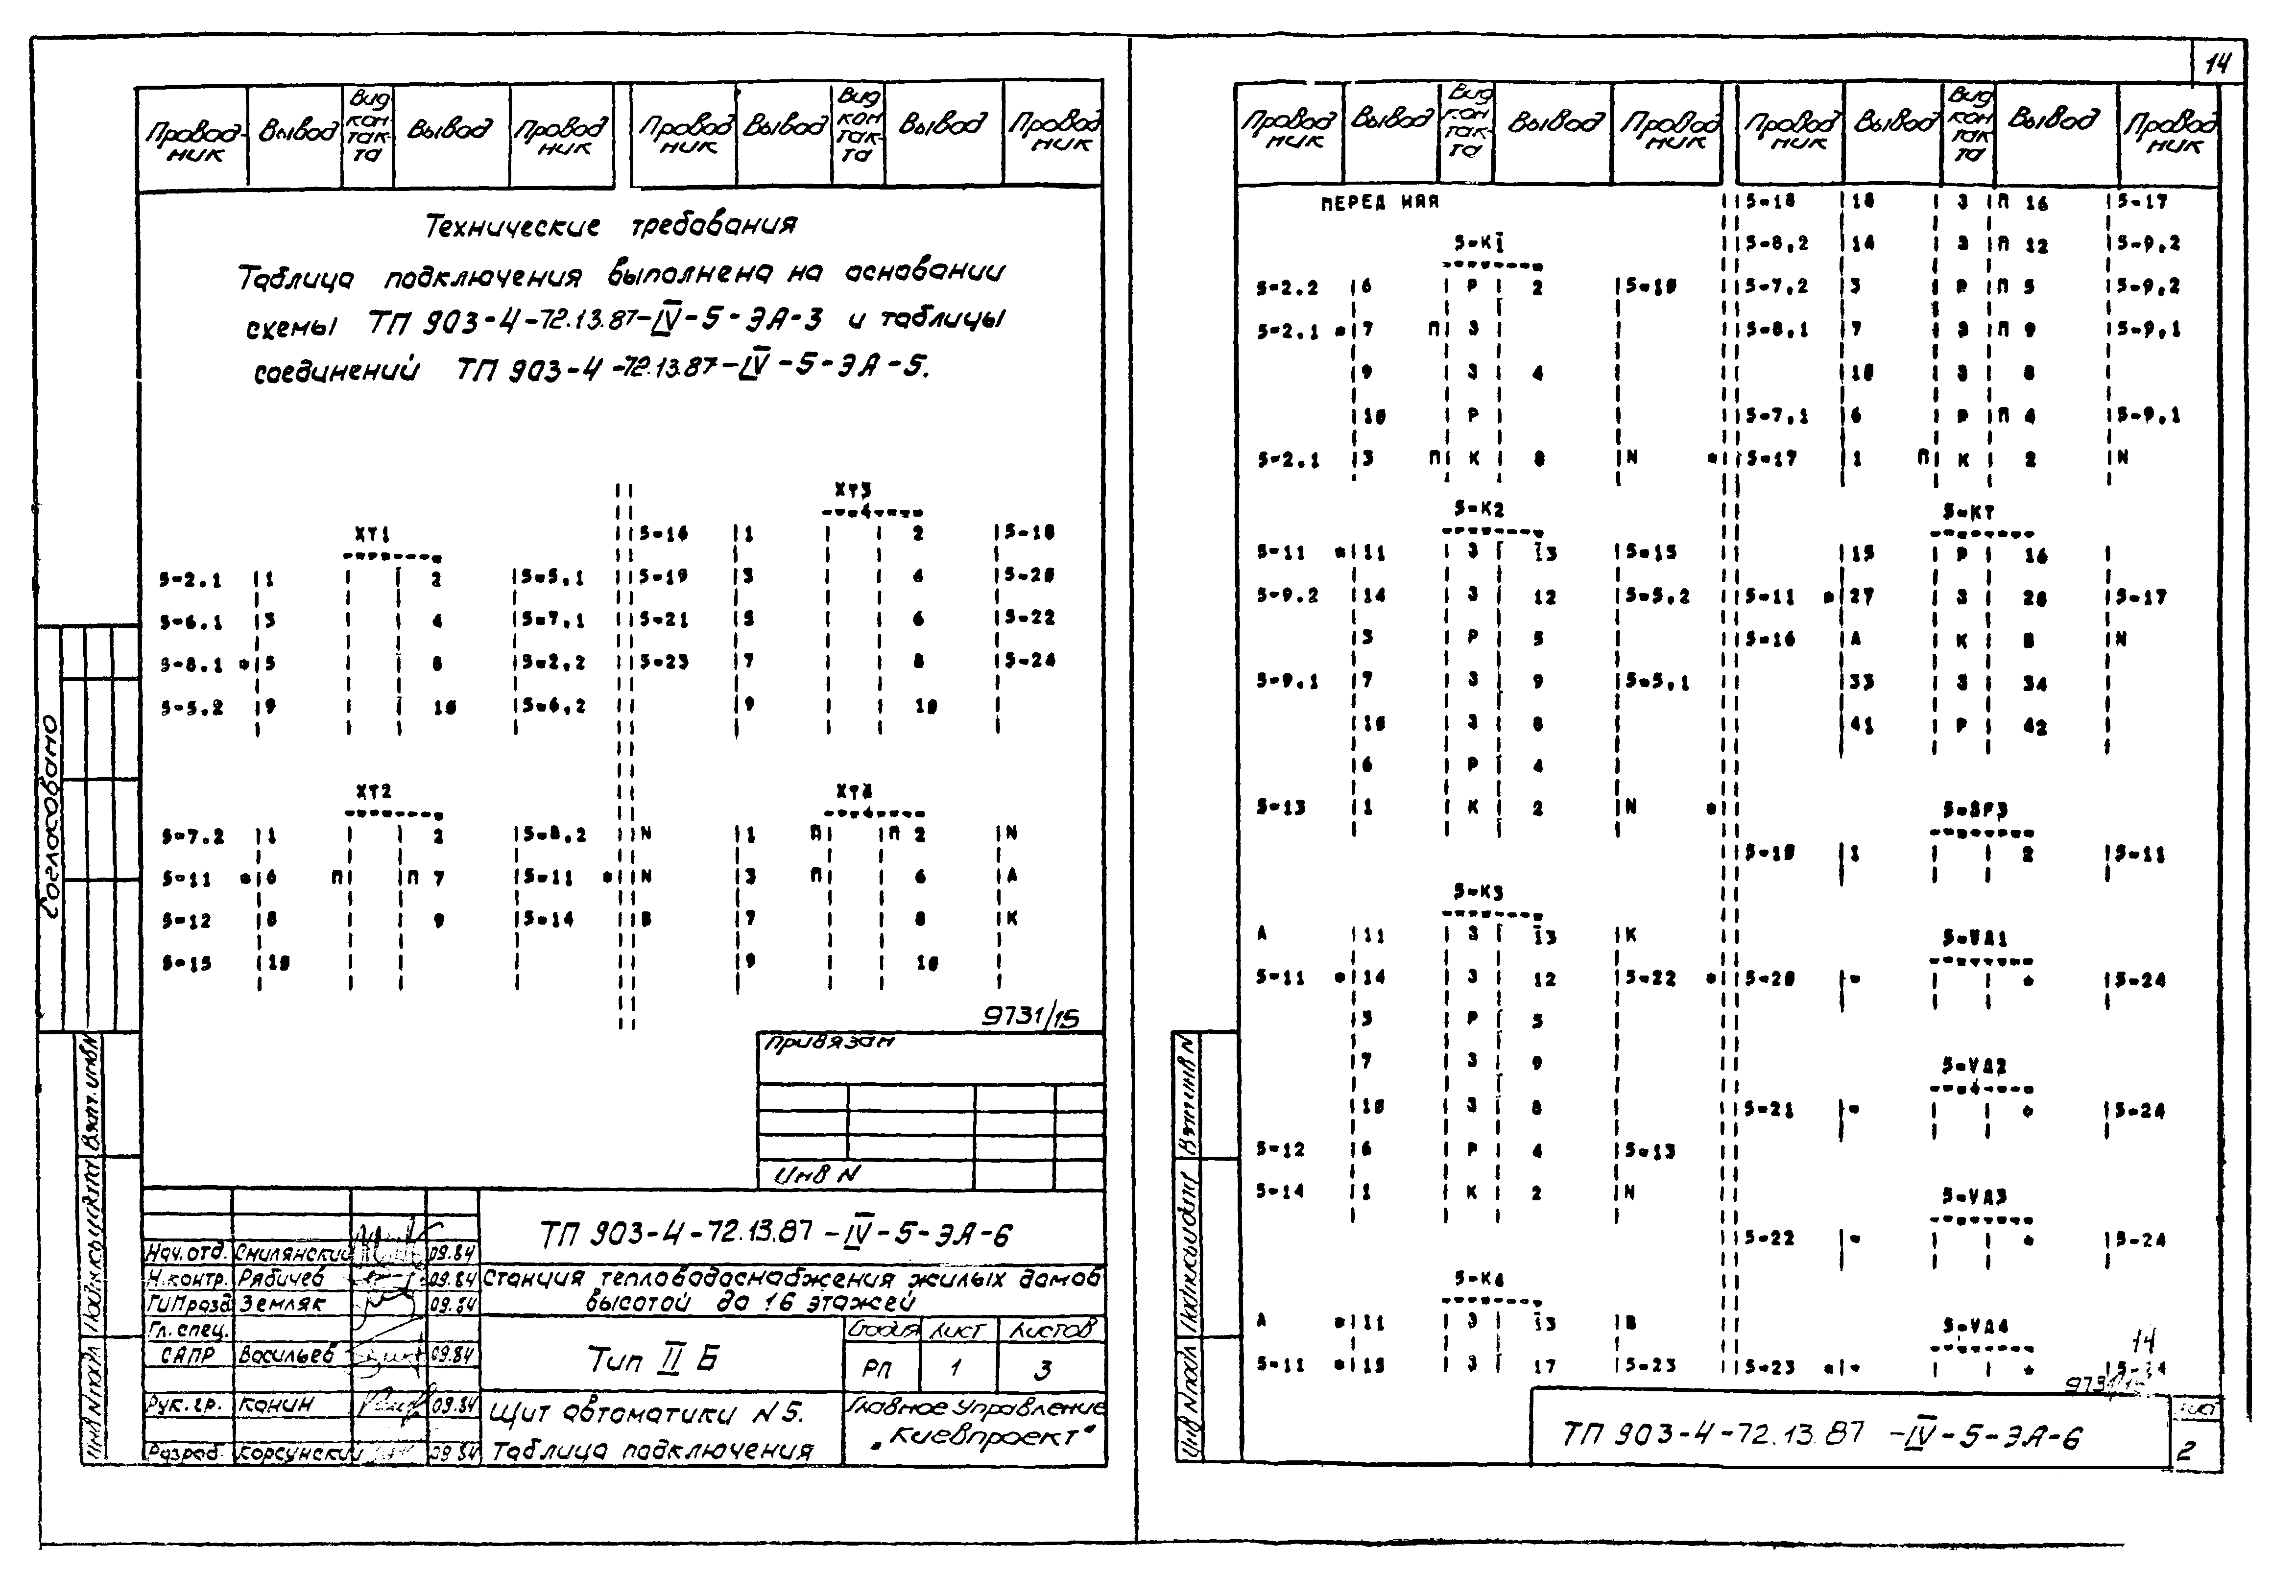 14
Провод-ник Вывод Вид кон-так-та Вывод Провод ник Провод ник Вывод Вид кон так-та Вывод Провод ник
Технические требования
Таблица подключения выполнена на основании
схемы ТП 903-4-72.13.87-IV-5-ЭА-3 и таблицы
соединений ТП 903-4-72.13.87-IV-5-ЭА-5.
ХТ1
5-2.1 1 2 5-5.1
5-6.1 3 4 5-7.1
5-8.1 * 5 6 5-2.2
5-5.2 9 10 5-6.2
ХТ2
5-7.2 1 2 5-8.2
5-11 * 6 П П 7 5-11 *
5-12 8 9 5-14
5-15 10
ХТ3
5-16 1 2 5-18
5-19 3 4 5-20
5-21 5 6 5-22
5-23 7 8 5-24
9 10
ХТ4
N 1 П П 2 N
N 3 П 6 А
В 7 8 К
9 10
9731/15
Привязан
Инв N
Согласовано
Взам. инв N
Подпись и дата
Инв N подл
ТП 903-4-72.13.87-IV-5-ЭА-6
Нач. отд. Смилянский 09.84
Н.контр. Рябичев 09.84
ГИПразд Земляк 09.84
Гл. спец.
САПР Васильев 09.84
Рук. гр. Канин 09.84
Разраб. Корсунский 09.84
Станция тепловодоснабжения жилых домов
высотой до 16 этажей
Тип II Б
Стадия Лист Листов
РП 1 3
Щит автоматики N5.
Таблица подключения
Главное Управление
"Киевпроект"
Провод ник Вывод Вид кон так-та Вывод Провод ник Провод ник Вывод Вид кон так та Вывод Провод ник
ПЕРЕД НЯЯ
5-К1
5-2.2 6 Р 2 5-10
5-2.1 * 7 П З
9 З 4
10 Р
5-2.1 3 П К 8 N *
5-К2
5-11 * 11 З 13 5-15
5-9.2 14 З 12 5-5.2
3 Р 5
5-9.1 7 З 9 5-5.1
10 З 8
6 Р 4
5-13 1 К 2 N *
5-К3
А 11 З 13 К
5-11 * 14 З 12 5-22 *
3 Р 5
7 З 9
10 З 8
5-12 6 Р 4 5-13
5-14 1 К 2 N
5-К4
А * 11 З 13 В
5-11 * 15 З 17 5-23
5-18 18 З П 16 5-17
5-8.2 14 З П 12 5-9.2
5-7.2 3 Р П 5 5-9.2
5-8.1 7 З П 9 5-9.1
10 З 8
5-7.1 6 Р П 4 5-9.1
5-17 1 П К 2 N
5-КТ
15 Р 16
5-11 * 27 З 28 5-17
5-16 А К В N
33 З 34
41 Р 42
5-SР3
5-10 1 2 5-11
5-VД1
5-20 - + 5-24
5-VД2
5-21 - + 5-24
5-VД3
5-22 - + 5-24
5-VД4
5-23 * - + 5-24
14
9731/15
Взам инв N
Подпись и дата
Инв N подл
ТП 903-4-72.13.87-IV-5-ЭА-6
Лист
2